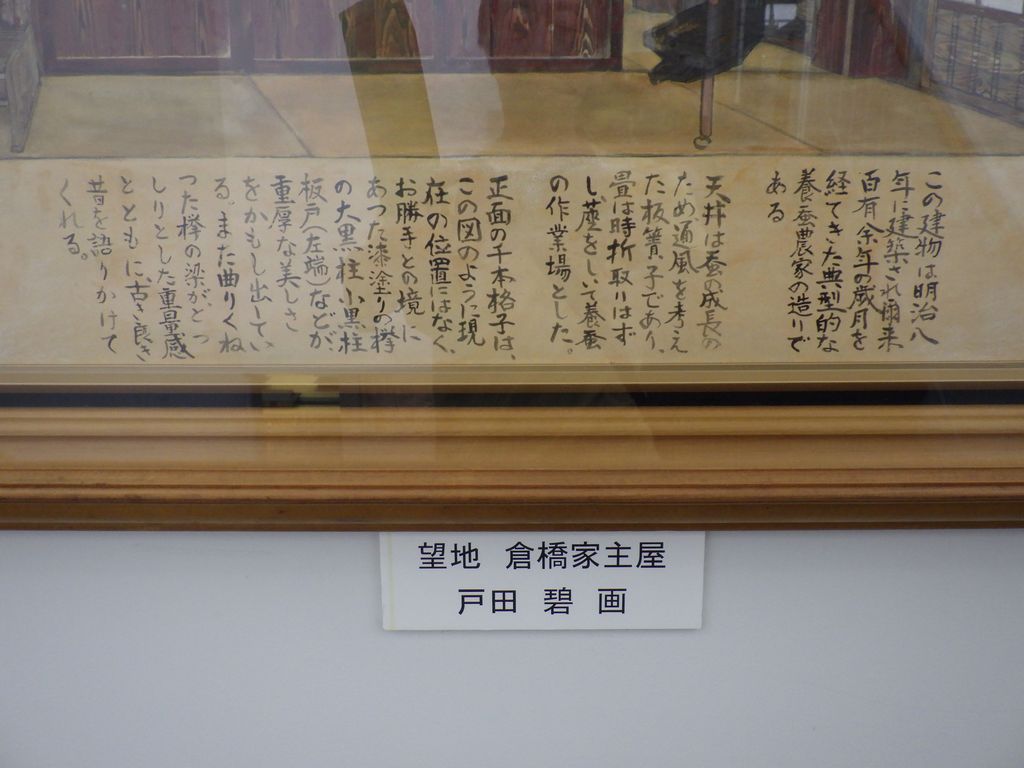 この建物は明治八
年に建築され爾来
百有余年の歳月を
経てきた典型的な
養蚕農家の造りで
ある
天井は蚕の成長の
ため通風を考え
た板簀子であり、
畳は時折取りはず
し、蓙をしいて養蚕
の作業場とした。
正面の千本格子は、
この図のように現
在の位置にはなく、
お勝手との境に
あった漆塗りの欅
の大黒柱、小黒柱
板戸(左端)などが、
重厚な美しさ
をかもし出してい
る。また曲りくね
った欅の梁が、どっ
しりとした重量感
とともに、古き良き
昔を語りかけて
くれる。
望地 倉橋家主屋
戸田 碧 画